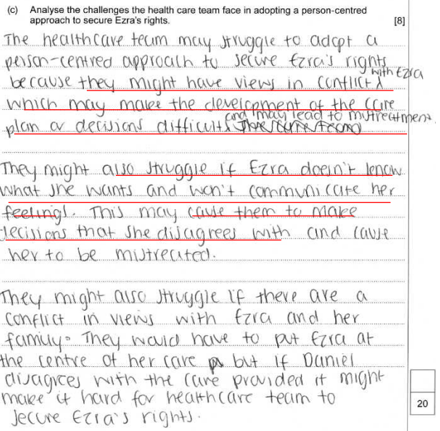 (c) Analyse the challenges the health care team face in adopting a person-centred
approach to secure Ezra's rights. [8]
The healthcare team may struggle to adopt a
person-centred approach to secure Ezra's rights
because they might have views in conflict with Ezra
which may make the development of the care
plan or decisions difficult and may lead to mistreatment.
They might also struggle if Ezra doesn't know
what she wants and won't communicate her
feelings. This may cause them to make
decisions that she disagrees with and cause
her to be mistreated.
They might also struggle if there are a
conflict in views with Ezra and her
family. They would have to put Ezra at
the centre of her care but if Daniel
disagrees with the care provided it might
make it hard for healthcare team to
secure Ezra's rights.
20